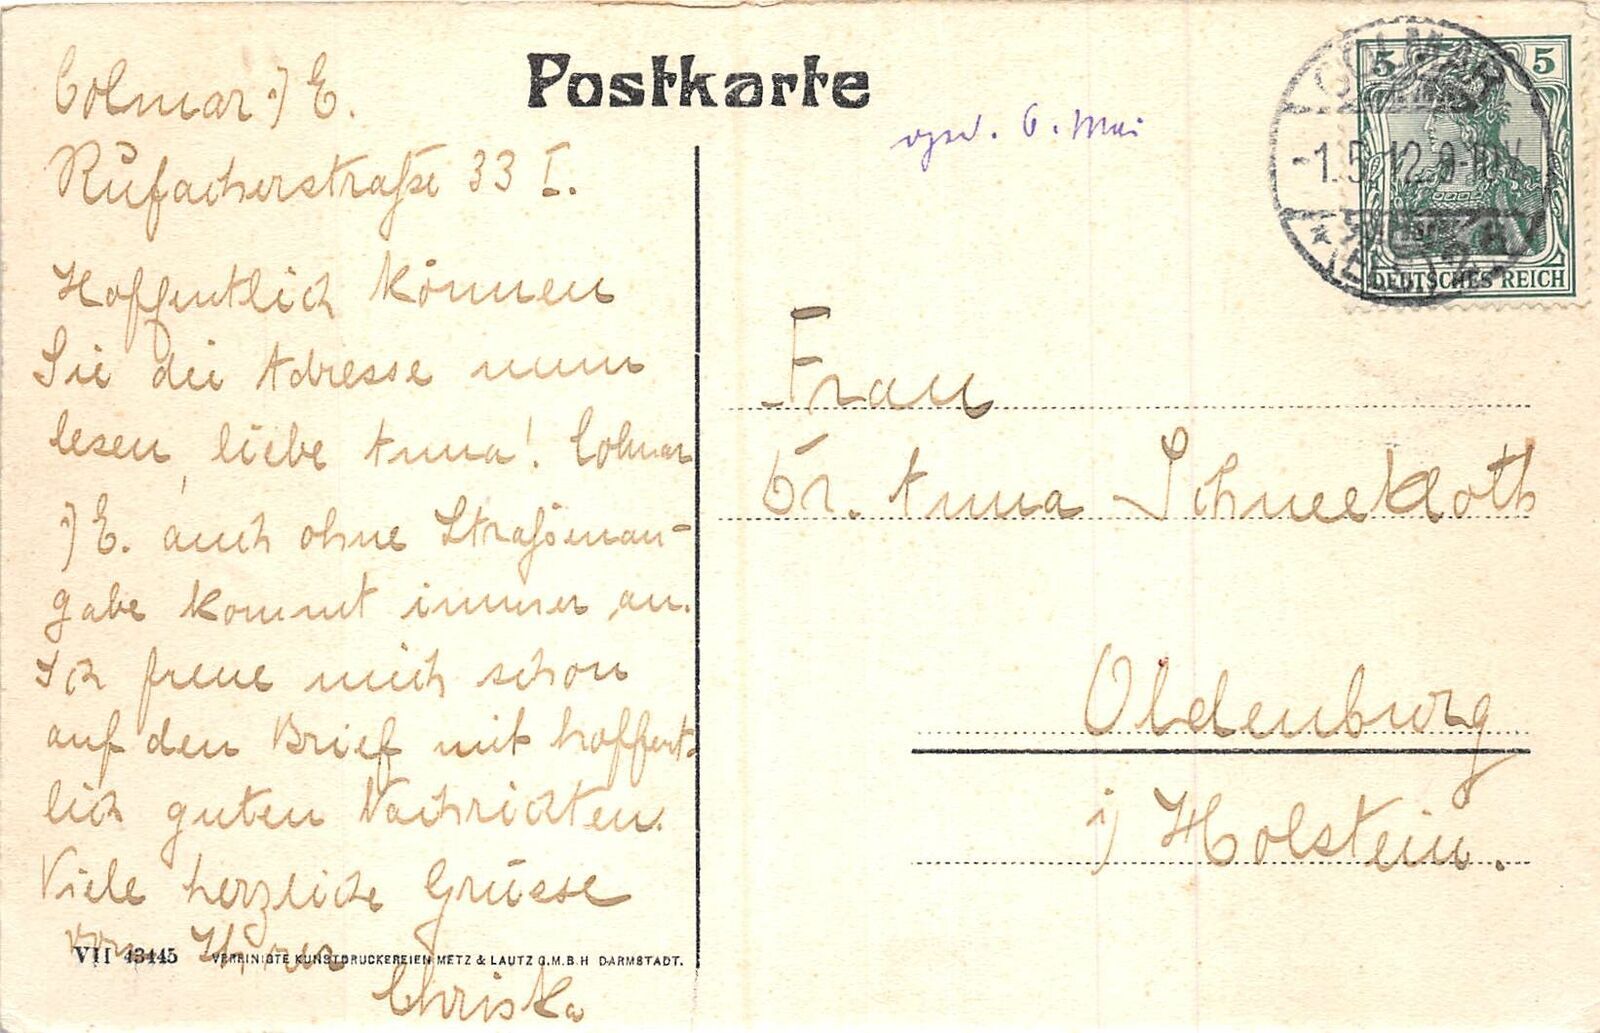 Postkarte
Colmar i/E.
Rufacherstraße 33 I.
Hoffentlich können
Sie die Adresse nun
lesen, liebe Anna! Colmar
i/E. auch ohne Straßenan-
gabe kommt immer an.
Ich freue mich schon
auf den Brief mit hoffent-
lich guten Nachrichten.
Viele herzliche Grüsse
von Ihrer
Christa
VII 43445 VEREINIGTE KUNSTDRUCKEREIEN METZ & LAUTZ G.M.B.H DARMSTADT.
6. Mai
COLMAR
-1.5.12.9-10V
(ELS.)
5 5
DEUTSCHES REICH
Frau
Dr. Anna Schneekloth
Oldenburg
i/Holstein.